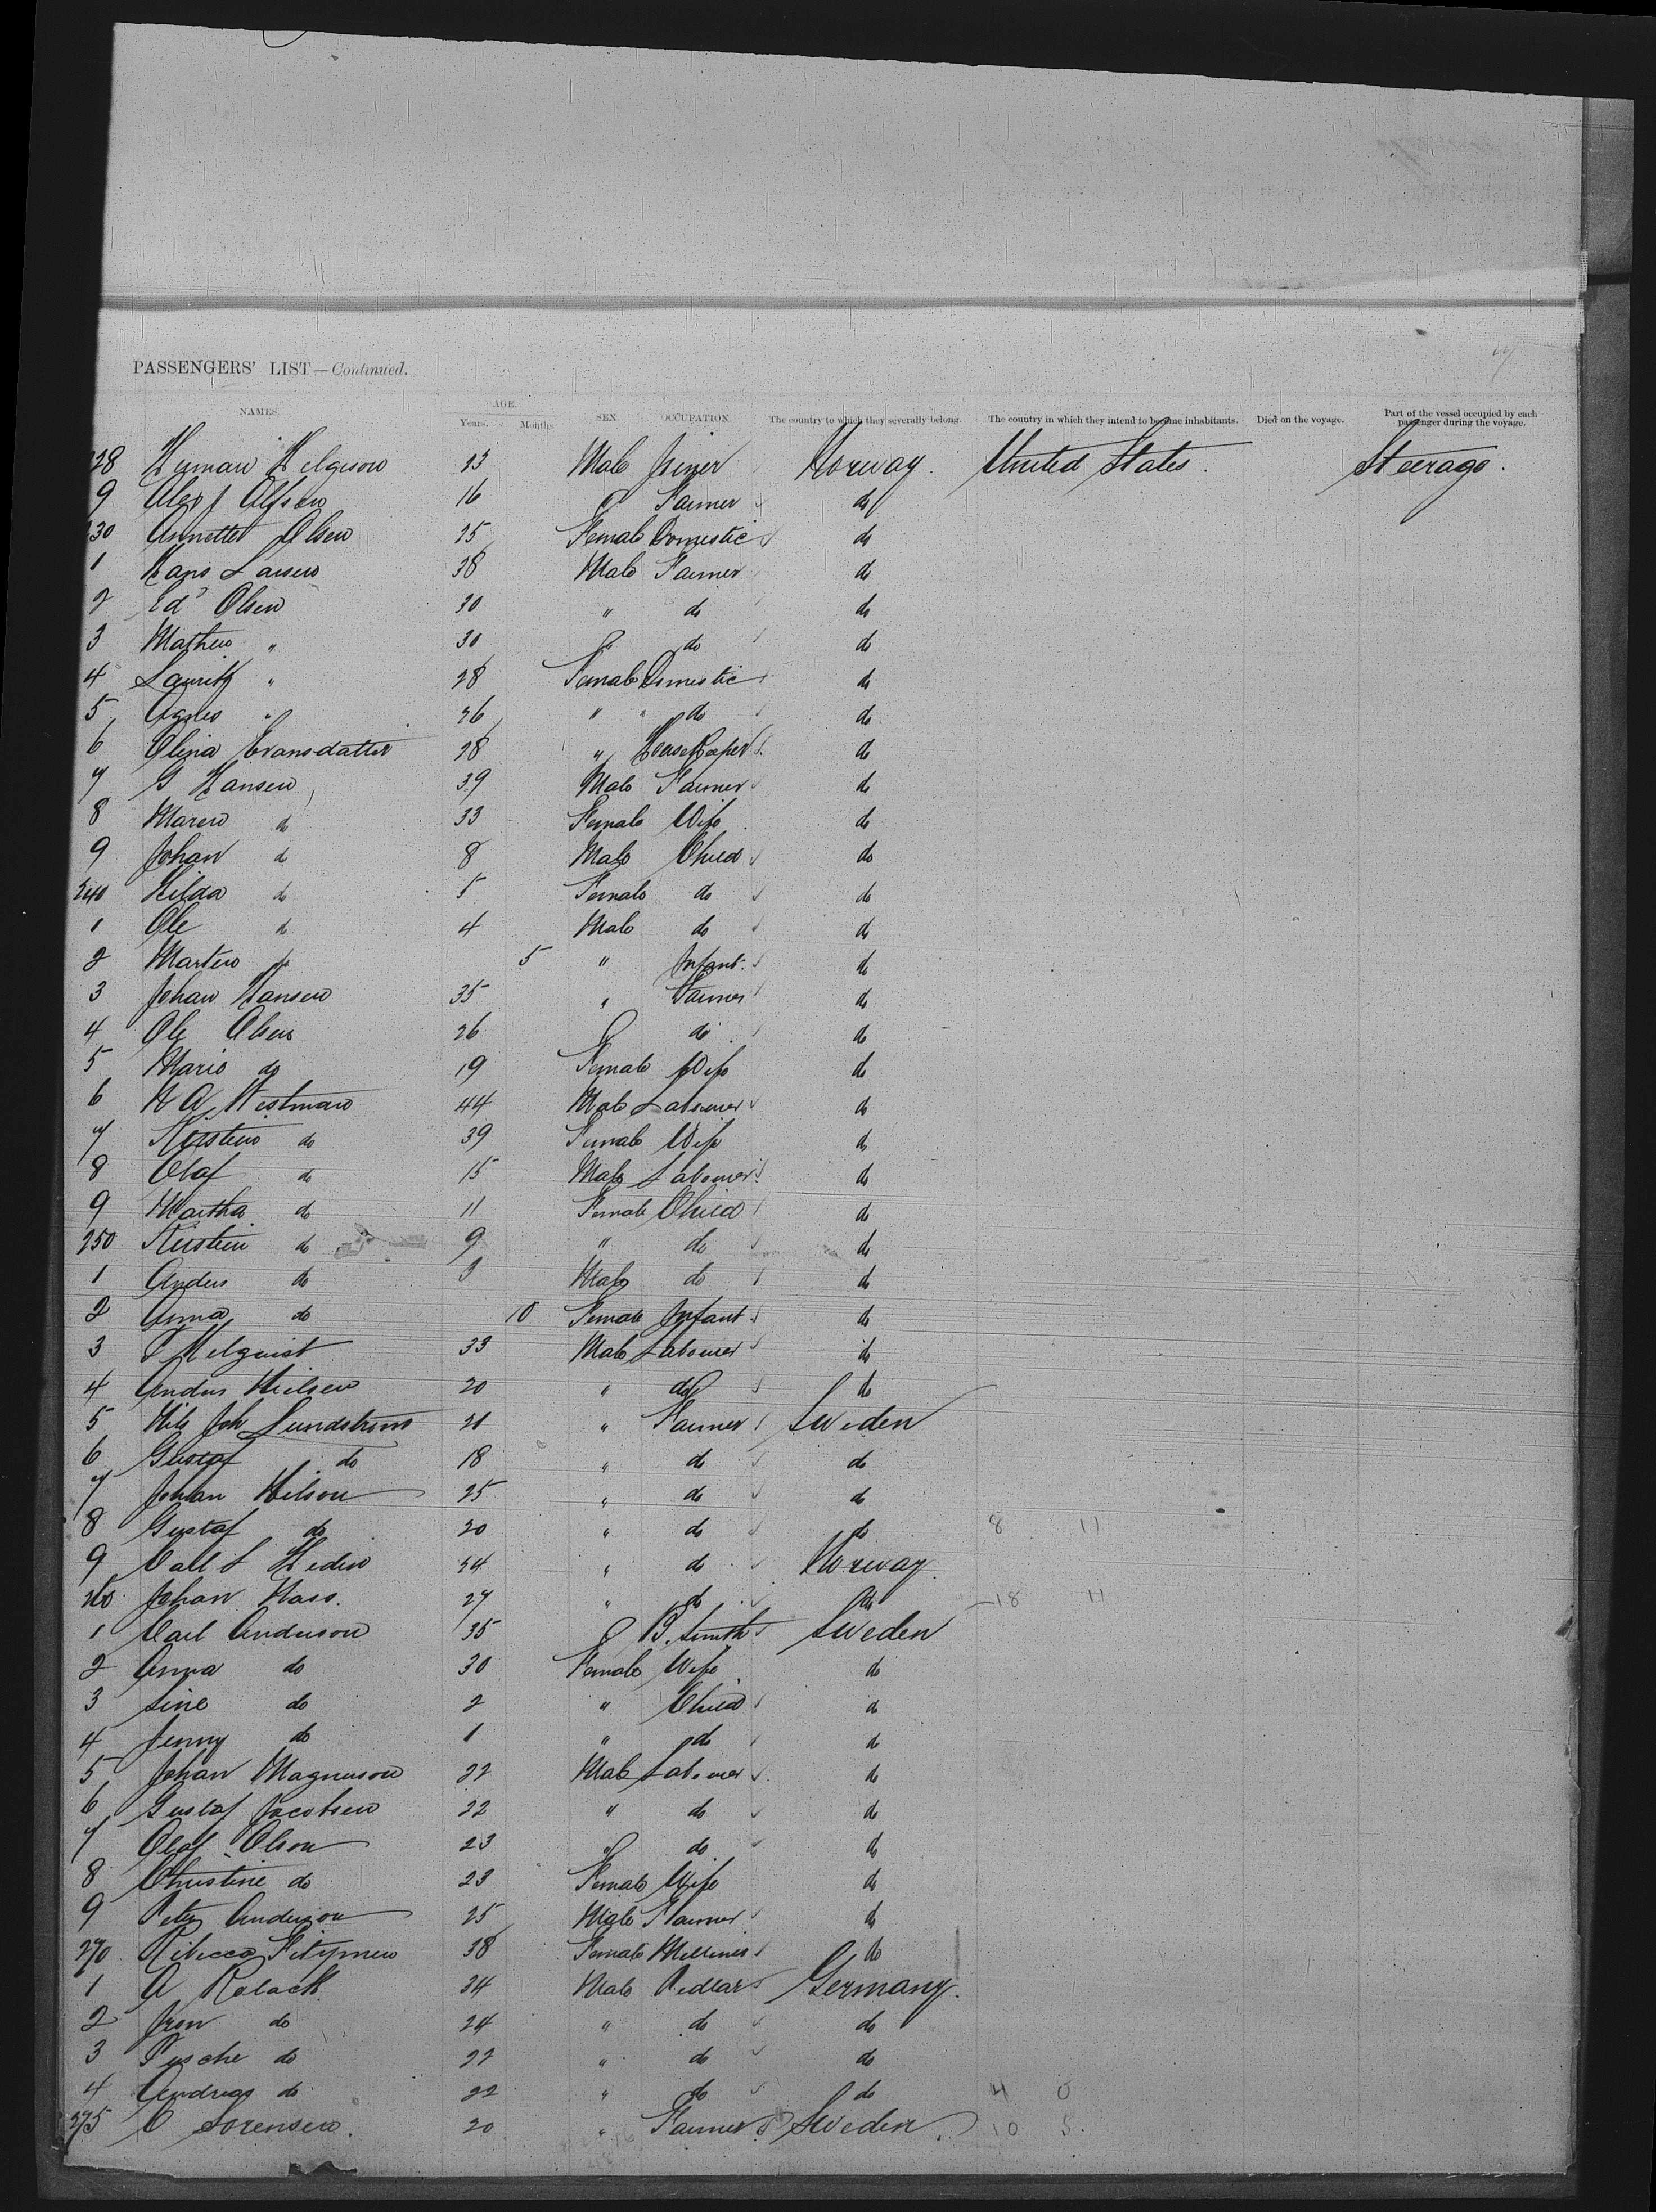 PASSENGERS' LIST—Continued.
NAMES AGE. Years. Months SEX OCCUPATION. The country to which they severally belong. The country in which they intend to become inhabitants. Died on the voyage. Part of the vessel occupied by each passenger during the voyage.
228 Herman Helgeson 23 Male Joiner Norway. United States. Steerage.
9 16 " Farmer do
230 Annette Olsen 25 Female Domestic do
1 Hans Larsen 38 Male Farmer do
2 Edd Olsen 30 " do do
3 Mathew " 30 " do do
4 Lauritz " 28 Female Domestic do
5 Agnes " 26 " do do
6 Olina Evansdatter 28 " HouseKeeper do
7 G Hansen 39 Male Farmer do
8 Maren do 33 Female Wife do
9 Johan do 8 Male Child do
240 Hilda do 5 Female do do
1 Ole do 4 Male do do
2 Marten do 5 " Infant do
3 Johan Hansen 35 " Farmer do
4 Ole Olsen 26 " do do
5 Marie do 19 Female Wife do
6 N A Westman 44 Male Labourer do
7 Kirsten do 39 Female Wife do
8 Olaf do 15 Male Labourer do
9 Martha do 11 Female Child do
250 Kirstein do 9 " do do
1 Anders do 3 Male do do
2 Anna do 10 Female Infant do
3 33 Male Labourer do
4 Anders Nielsen 20 " do do
5 Nils Joh Lundstrom 21 " Farmer Sweden
6 Gustaf do 18 " do do
7 Johan Nilson 25 " do do
8 Gustaf do 20 " do do 8 11
9 Hedin 24 " do Norway.
260 Johan Hass. 27 " do do 18 11
1 Carl Anderson 35 " B. Smith Sweden
2 Anna do 30 Female Wife do
3 Sine do 2 " Child do
4 Jenny do 1 " do do
5 Johan Magnuson 22 Male Labourer do
6 Gustaf Jacobsen 22 " do do
7 Olof Olson 23 " do do
8 Christine do 23 Female Wife do
9 Peter Anderson 25 Male Farmer do
270 Rebecca 38 Female Milliner do
1 A 24 Male Pedlar Germany.
2 do 24 " do do
3 do 22 " do do
4 Andreas do 22 " do do 4 0
275 C Sorensen. 20 " Farmer Sweden. 10 5.